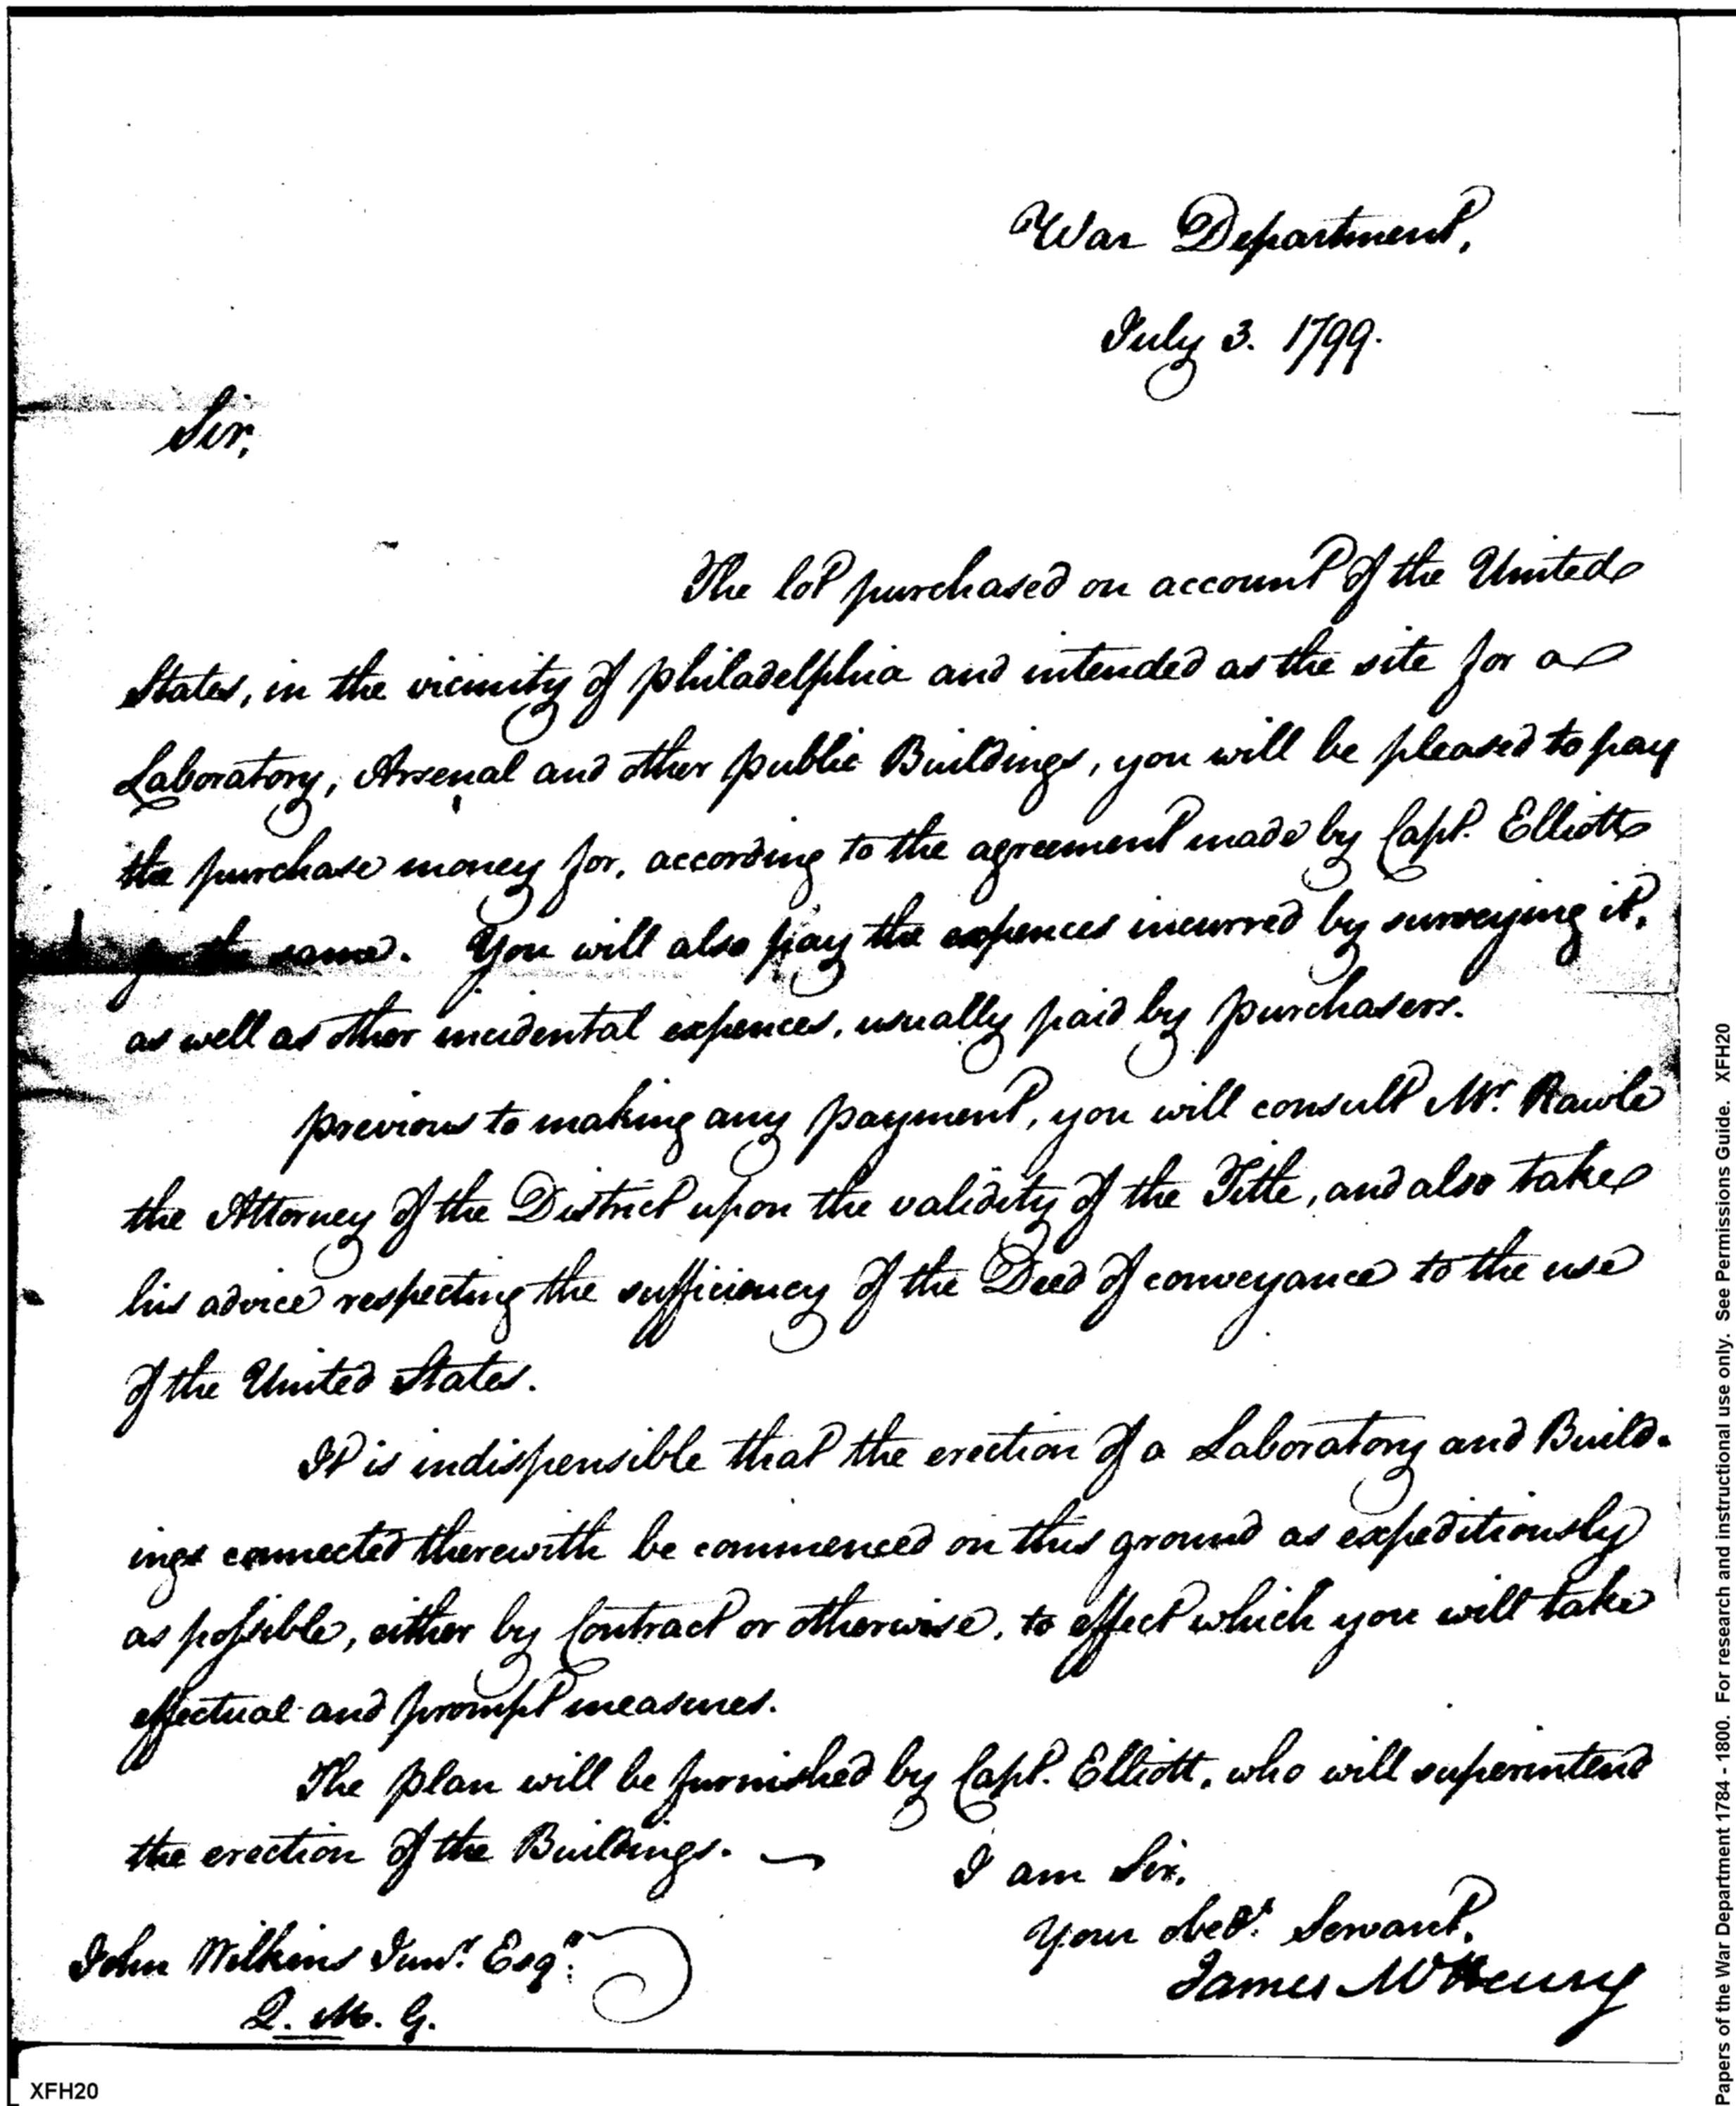 War Department,
July 3. 1799.
Sir,
The lot purchased on account of the United
States, in the vicinity of philadelphia and intended as the site for a
Laboratory, Arsenal and other public Buildings, you will be pleased to pay
the purchase money for, according to the agreement made by Capt. Elliott
for the same. You will also pay the expences incurred by surveying it,
as well as other incidental expences, usually paid by purchasers.
previous to making any payment, you will consult Mr. Rawle
the Attorney of the District upon the validity of the Title, and also take
his advice respecting the sufficiency of the Deed of conveyance to the use
of the United States.
It is indispensible that the erection of a Laboratory and Build-
ings connected therewith be commenced on this ground as expeditiously
as possible, either by Contract or otherwise, to effect which you will take
effectual and prompt measures.
The plan will be furnished by Capt. Elliott, who will superintend
the erection of the Buildings.
I am Sir,
Your obedt. Servant,
James McHenry
John Wilkins Junr. Esqr.
Q. M. G.
XFH20
Papers of the War Department 1784 - 1800. For research and instructional use only. See Permissions Guide. XFH20